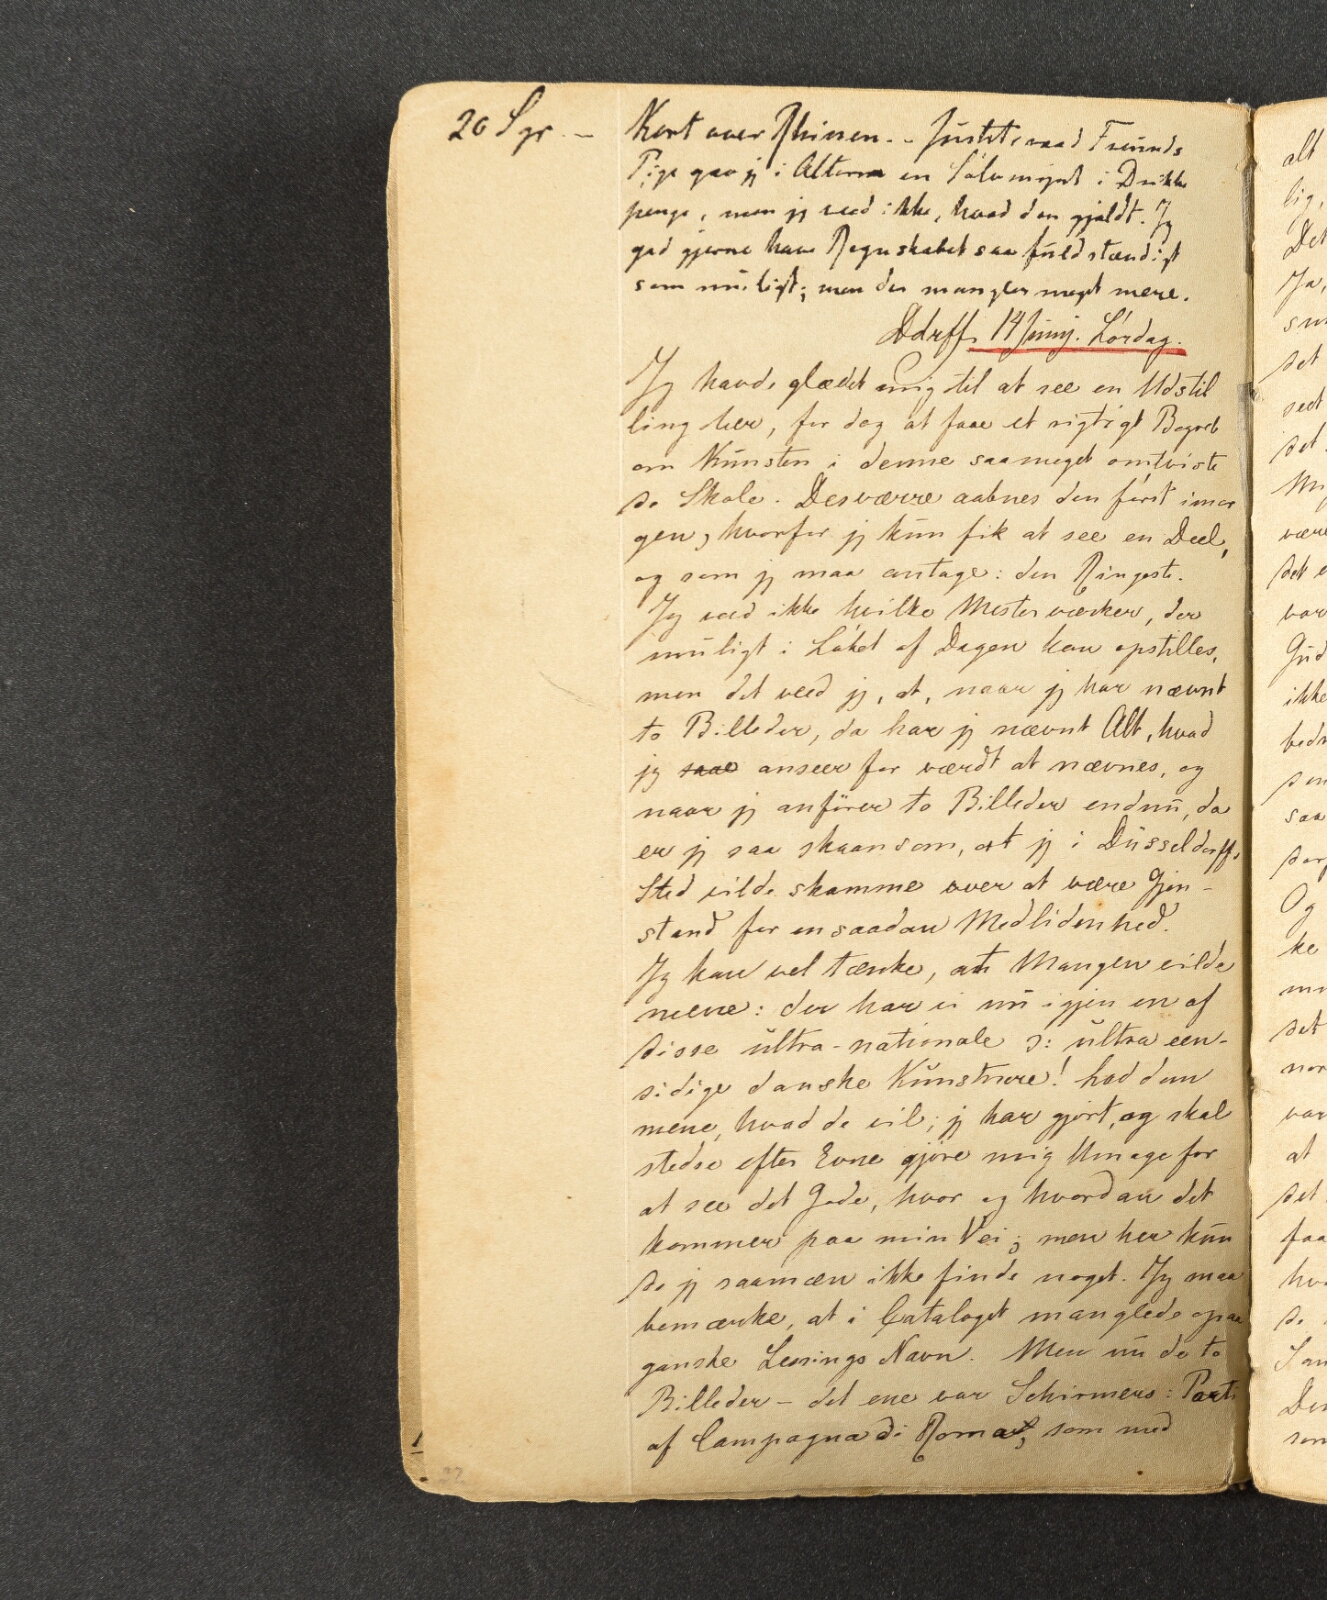 20 Sgr. — Kort over Rhinen. – Justitsraad Freunds
Pige gav jeg i Altona en Sølvmynt i Drikke
penge, men jeg veed ikke, hvad den gjaldt. Jeg
gad gjerne have Regnskabet saa fuldstændigt
som muligt; men der mangler meget mere.
Ddrff. 14 Junij. Lørdag.
Jeg havde glædet mig til at see en Udstil
ling her, for dog at faae et rigtigt Begreb
om Kunsten i denne saameget omtviste
de Skole. Desværre aabnes den først imor
gen, hvorfor jeg kun fik at see en Deel,
og som jeg maa antage: den Ringeste.
Jeg veed ikke hvilke Mesterværker, der
muligt i Løbet af Dagen kan opstilles,
men det veed jeg, at, naar jeg har nævnt
to Billeder, da har jeg nævnt Alt, hvad
jeg saae anseer for værdt at nævnes, og
naar jeg anfører to Billeder endnu, da
er jeg saa skaansom, at jeg i Düsseldorffs
Sted vilde skamme over at være Gjen-
stand for en saadan Medlidenhed.
Jeg kan vel tænke, at Mangen vilde
mene: der har vi nu igjen en af
disse ultra-nationale ɔ: ultra een-
sidige danske Kunstnere! Lad dem
mene, hvad de vil; jeg har gjort, og skal
stedse efter Evne gjøre mig Umage for
at see det Gode, hvor og hvordan det
kommer paa min Vei; men her kun
de jeg saamæn ikke finde noget. Jeg maa
bemærke, at i Cataloget manglede ogsaa
ganske Lessings Navn. Men nu de to
Billeder – det ene var Schirmers: Parti
af Campagna di Roma, som med
22
alt
lig,
Det
Ja,
det
seet
det
være
det
var
Gud
ikke
saa
Og
ke
det
var
at
det
faa
de
som